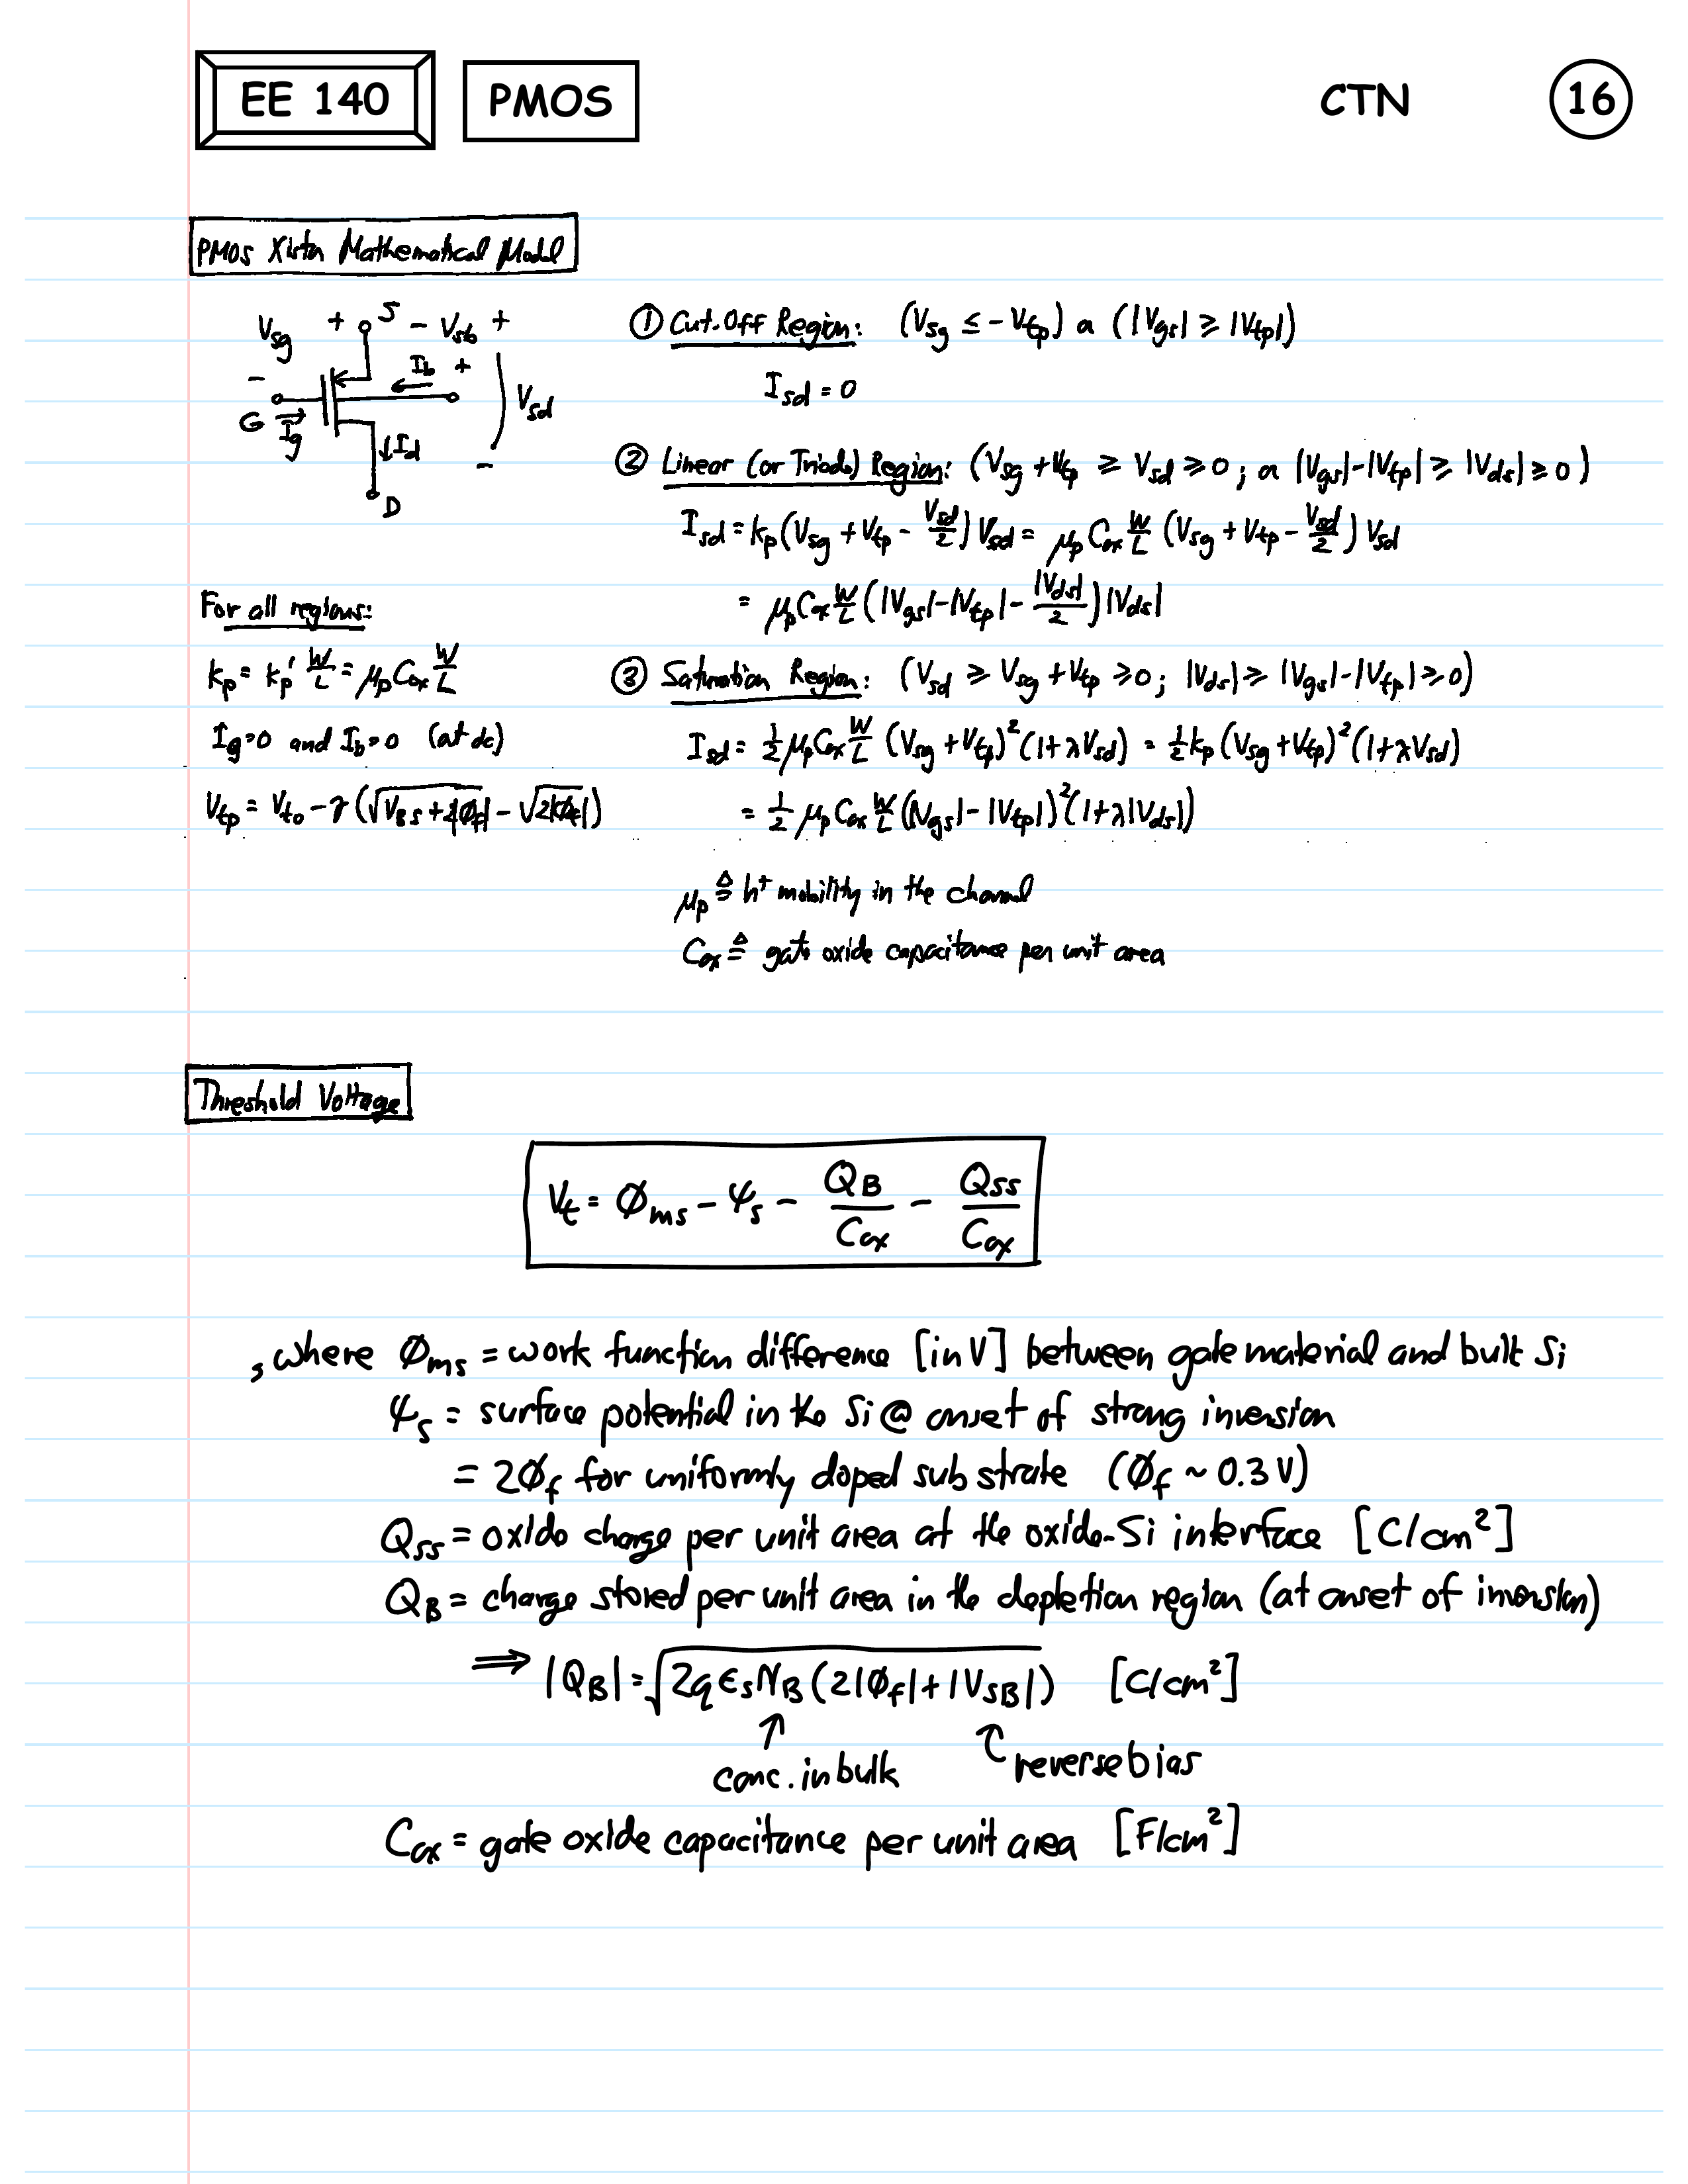 EE 140 PMOS CTN 16
PMOS Xistor Mathematical Model
Vsg + S - Vsb +
- Ib +
G Ig Id Vsd
-
D
① Cut-Off Region: (Vsg ≤ -Vtp) or (|Vgs| ≥ |Vtp|)
Isd = 0
② Linear (or Triode) Region: (Vsg + Vtp ≥ Vsd ≥ 0; or |Vgs|-|Vtp| ≥ |Vds| ≥ 0)
Isd = kp(Vsg + Vtp - Vsd/2)Vsd = μp Cox W/L (Vsg + Vtp - Vsd/2) Vsd
= μp Cox W/L (|Vgs|-|Vtp| - |Vds|/2) |Vds|
For all regions:
kp = kp' W/L = μp Cox W/L
Ig=0 and Ib=0 (at dc)
Vtp = Vto - γ(√(VBS + 2|φf|) - √(2|φf|))
③ Saturation Region: (Vsd ≥ Vsg + Vtp ≥ 0; |Vds| ≥ |Vgs|-|Vtp| ≥ 0)
Isd = 1/2 μp Cox W/L (Vsg + Vtp)²(1+λVsd) = 1/2 kp (Vsg + Vtp)²(1+λVsd)
= 1/2 μp Cox W/L (|Vgs|-|Vtp|)²(1+λ|Vds|)
μp ≜ h⁺ mobility in the channel
Cox ≜ gate oxide capacitance per unit area
Threshold Voltage
Vt = φms - ψs - QB/Cox - Qss/Cox
, where φms = work function difference [in V] between gate material and bulk Si
ψs = surface potential in the Si @ onset of strong inversion
= 2φf for uniformly doped substrate (φf ~ 0.3 V)
Qss = oxide charge per unit area at the oxide-Si interface [C/cm²]
QB = charge stored per unit area in the depletion region (at onset of inversion)
⟹ |QB| = √(2qεsNB(2|φf|+|VSB|)) [C/cm²]
↑ conc. in bulk reverse bias
Cox = gate oxide capacitance per unit area [F/cm²]